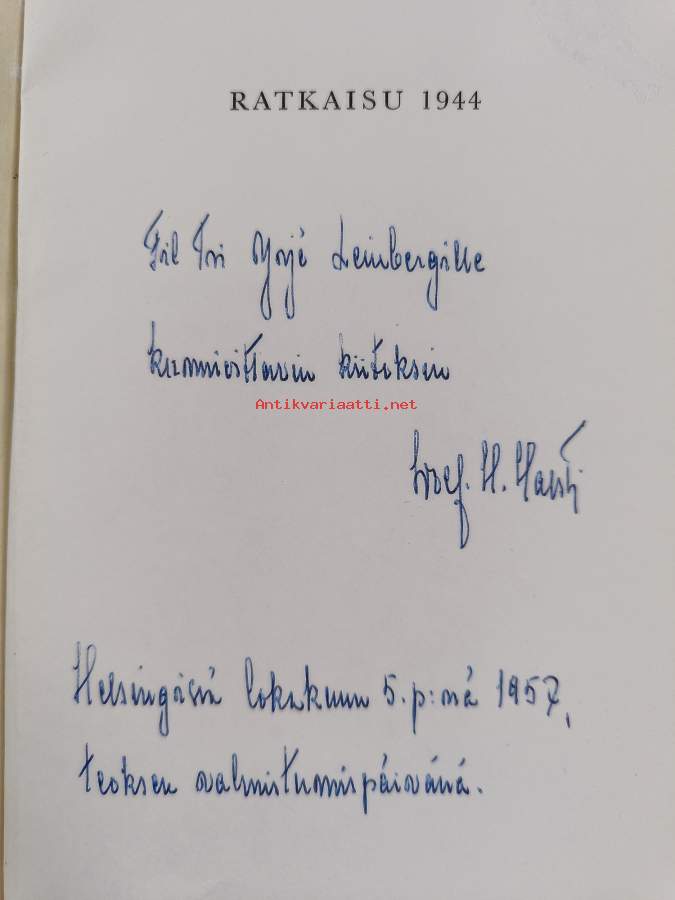 RATKAISU 1944
Fil Tri Yrjö Leinbergille
kunnioittavin kiitoksin
Antikvariaatti.net
Wolf. H. Halsti
Helsingissä lokakuun 5. p:nä 1957,
teoksen valmistumispäivänä.